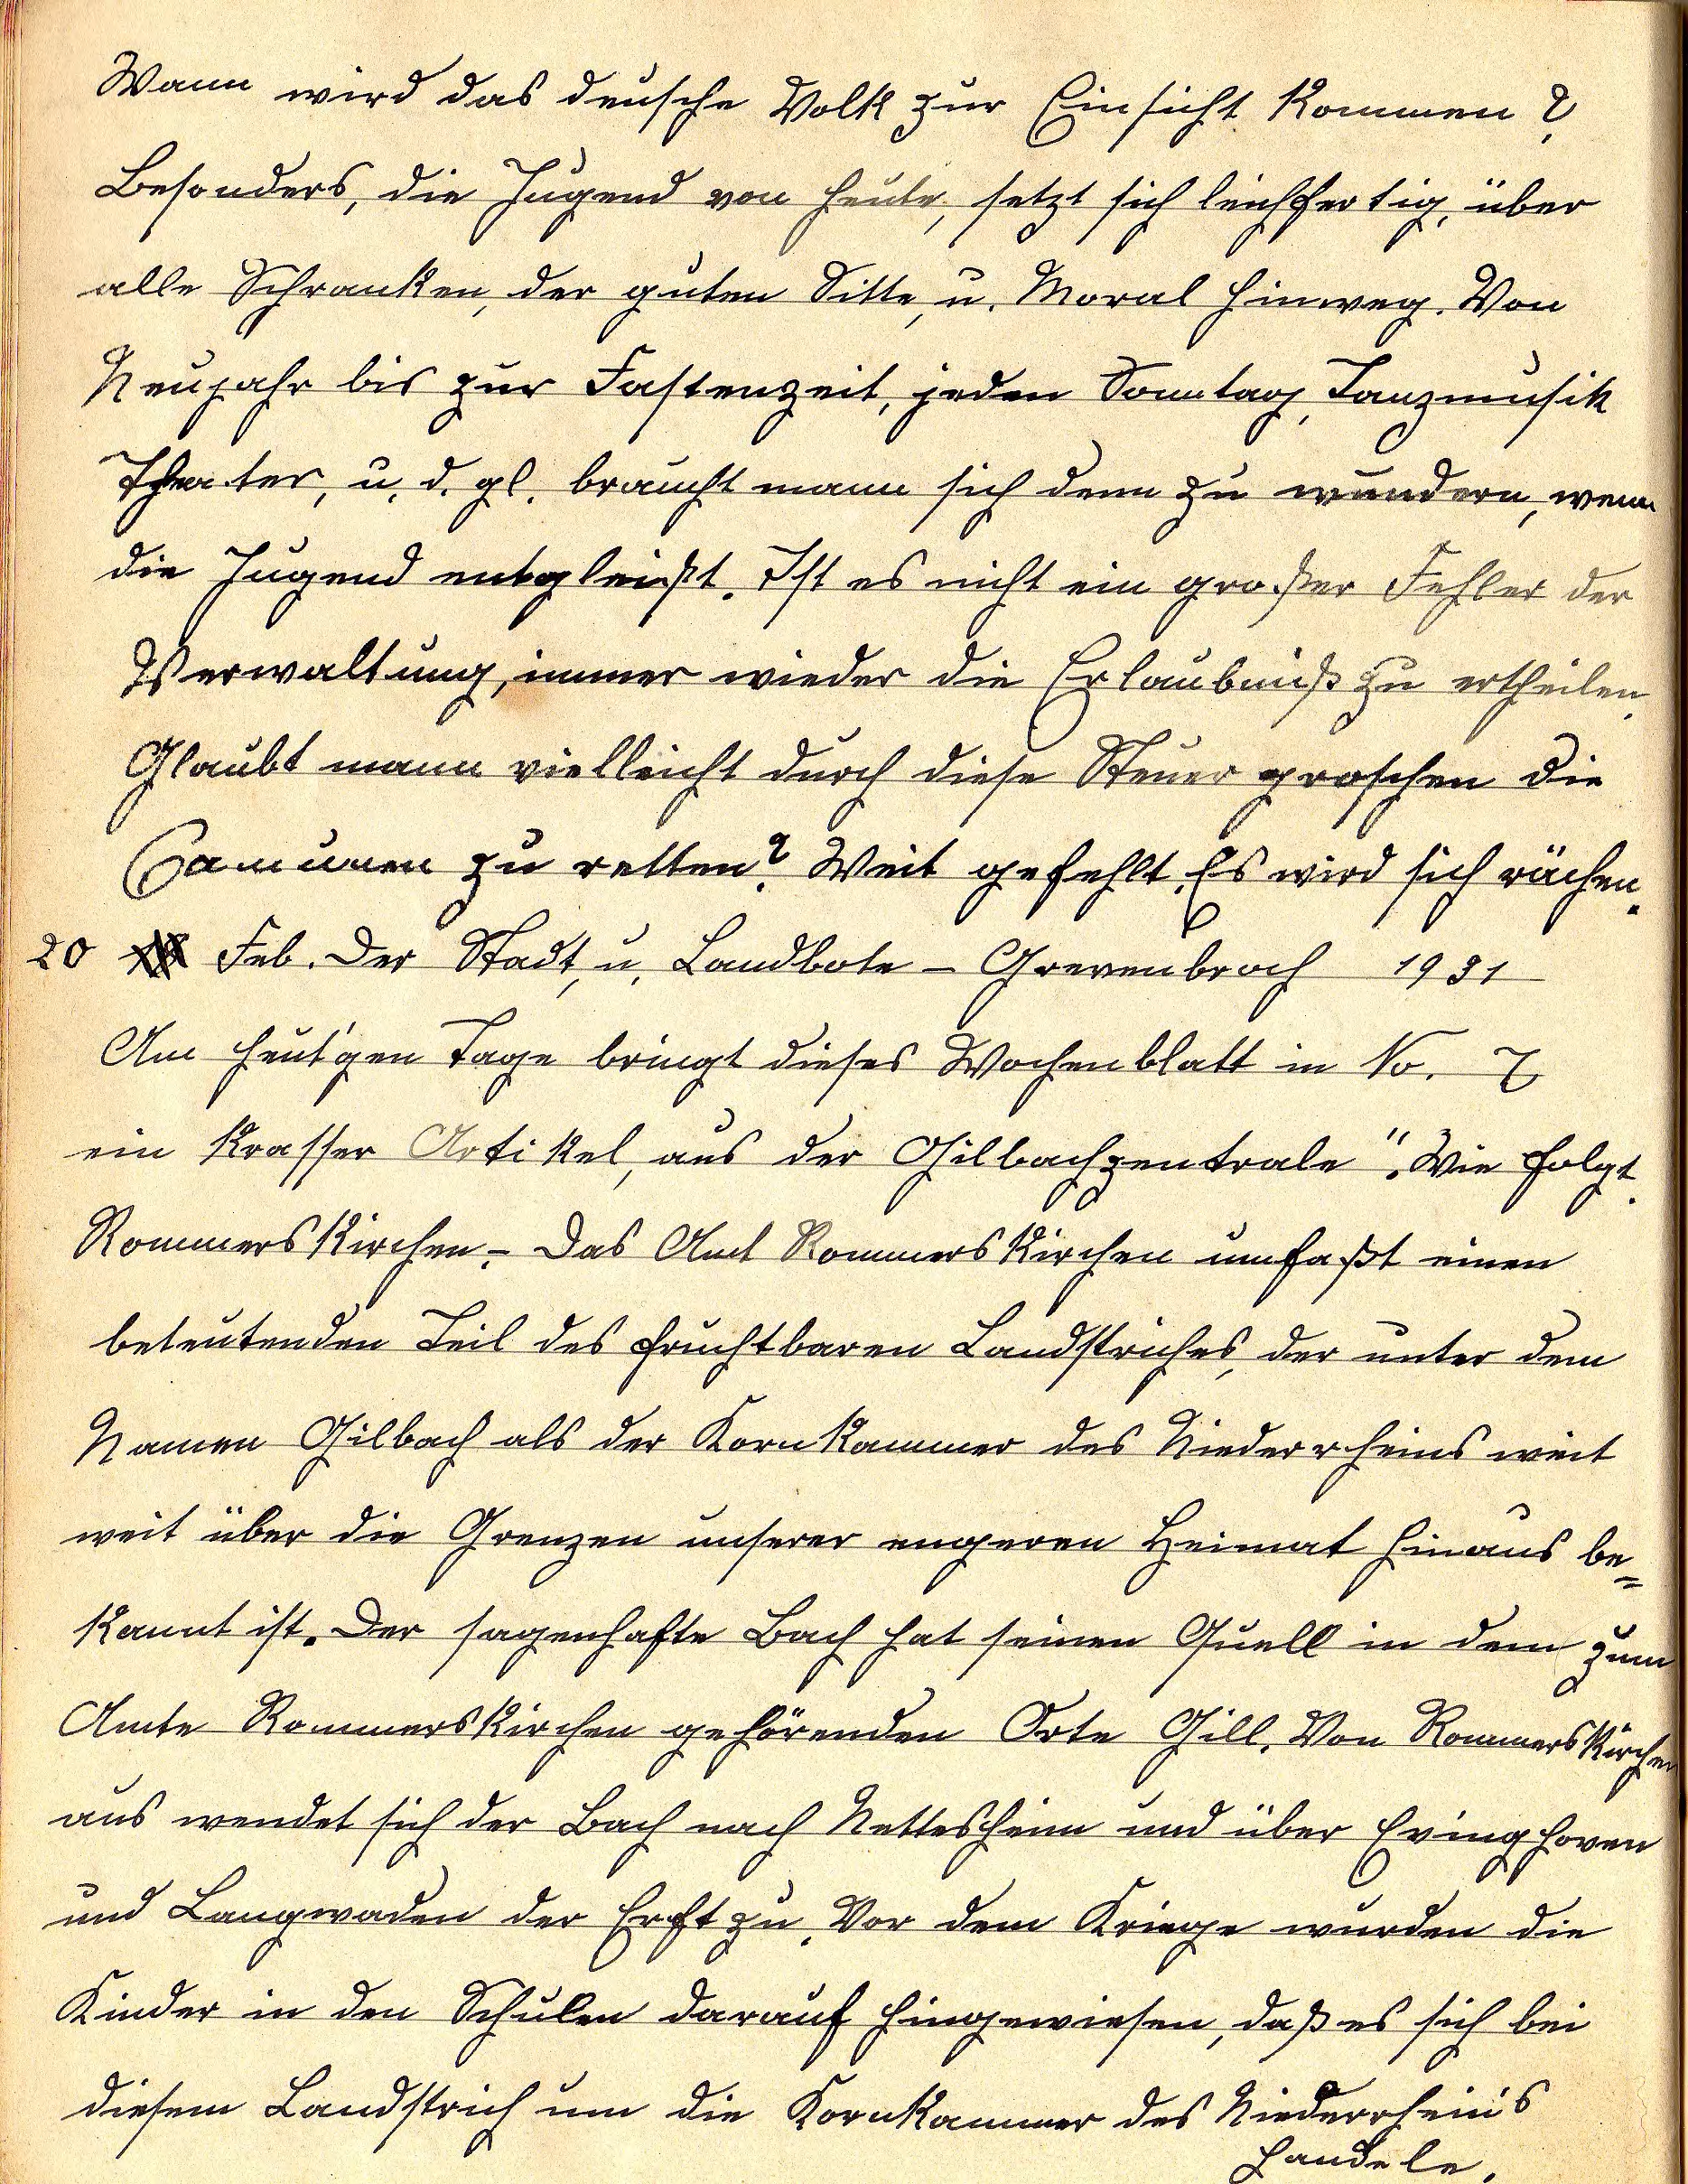 Wann wird das deusche Volk zur Einsicht kommen?
Besonders, die Jugend von heute, setzt sich leichfertig, über
alle Schranken, der guten Sitte, u. Moral hinweg. Von
Neujahr bis zur Fastenzeit, jeden Sonntag, Tanzmusik
Theater, u. d. gl. braucht mann sich denn zu wundern, wenn
die Jugend entgleißt. Ist es nicht ein großer Fehler der
Verwaltung, immer wieder die Erlaubniß zu ertheilen.
Glaubt mann vielleicht durch diese Steuer groschen die
Camunen zu retten? Weit gefehlt. Es wird sich rächen.
20 Feb. Der Stadt, u. Landbote - Grevenbroch 1931
Am heut'gen Tage bringt dieses Wochenblatt in No. 7
ein krasser Artikel, aus der Gilbachzentrale". Wie folgt.
Rommerskirchen. - Das Amt Rommerskirchen umfaßt einen
beteutenden Teil des fruchtbaren Landstriches, der unter dem
Namen Gilbach als der Kornkammer des Niederrheins weit
weit über die Grenzen unserer engeren Heimat hinaus be=
kannt ist. Der sagenhafte Bach hat seinen Quell in dem zum
Amte Rommerskirchen gehörenden Orte Gill. Von Rommerskirchen
aus wendet sich der Bach nach Nettesheim und über Evinghoven
und Langwaden der Erft zu. Vor dem Kriege wurden die
Kinder in den Schulen darauf hingewiesen, daß es sich bei
diesem Landstrich um die Kornkammer des Niederrheins
handele.